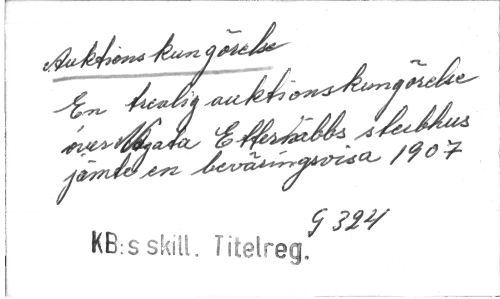 Auktionskungörelse
En trevlig auktionskungörelse
över Agata Etterkäbbs sterbhus
jämte en beväringsvisa 1907
G 324
KB:s skill. Titelreg.